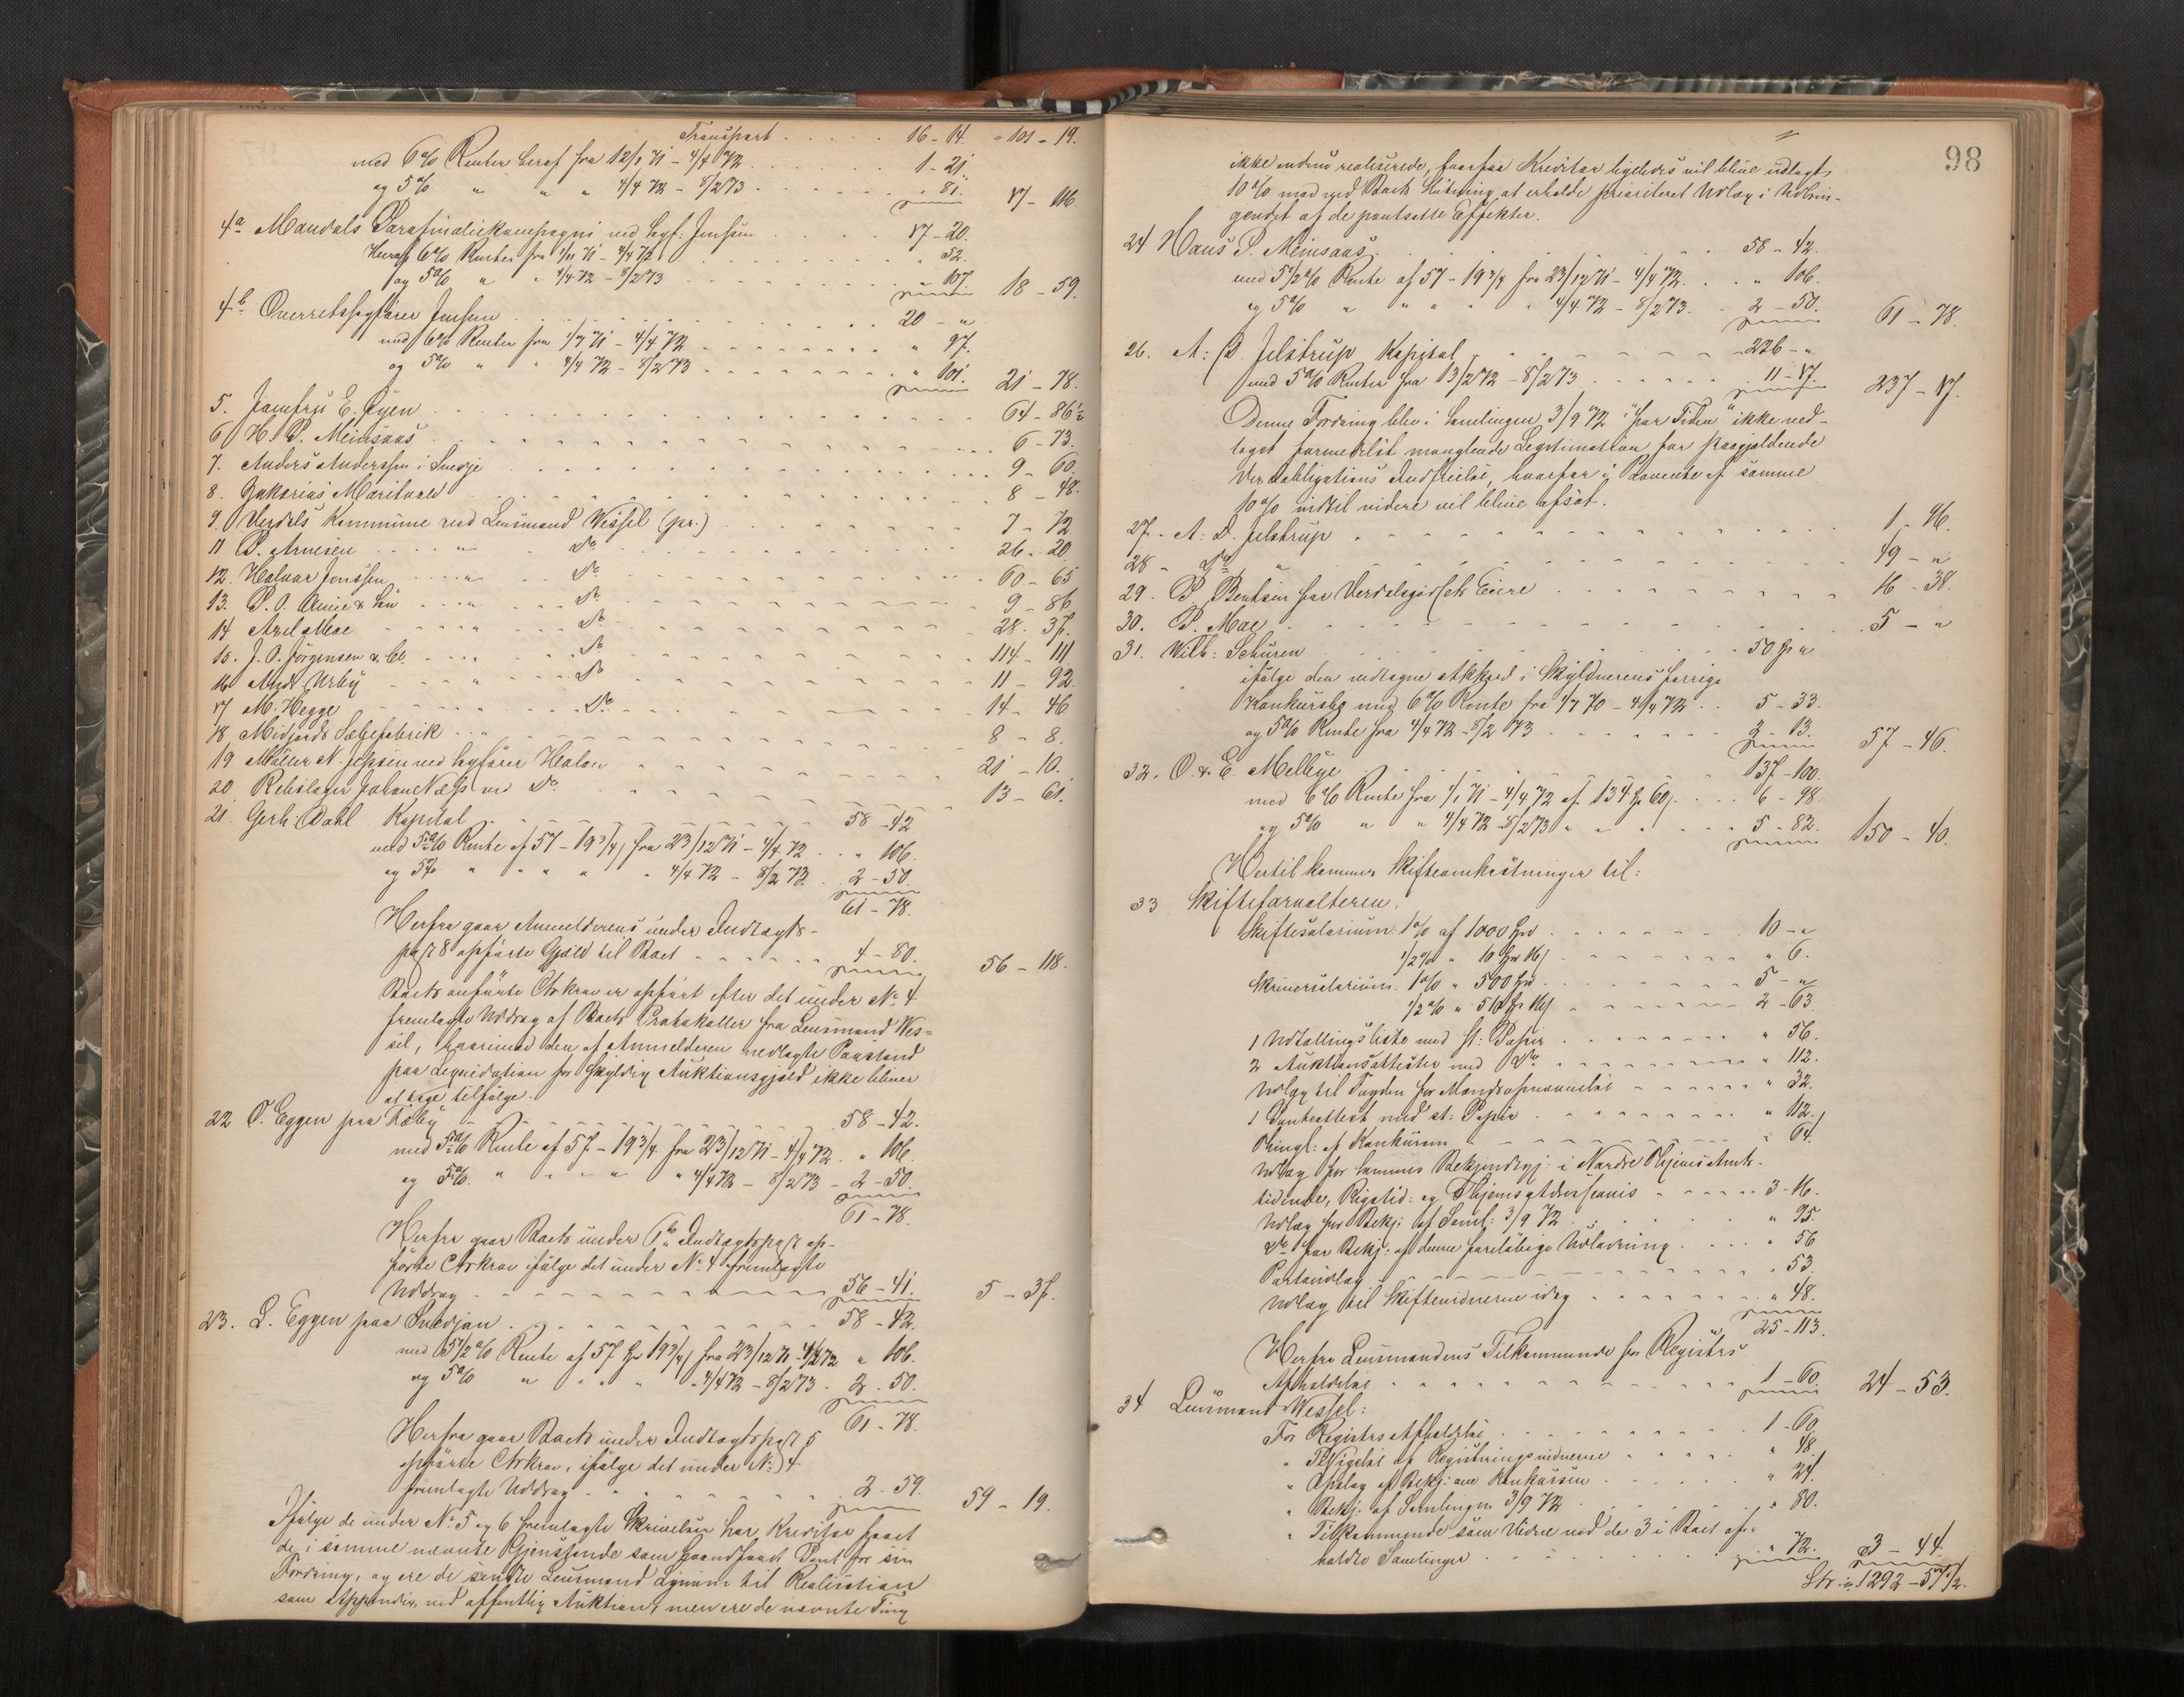 Transport . . . . . 16 - 14. " 101 - 19.
med 6 % Renter heraf fra 12/1 71 - 4/4 72 . . . 1 - 21.
og 5 % " " " 4/4 72 - 8/2 73 . . . " 81. 17 - 116.
4a Mandals Parafinoliekompagni ved Sagf. Jensen . . . 17 - 20.
Heraf 6 % Renter fra 1/11 71 - 4/4 72 . . . " 52.
og 5 % " " 4/4 72 - 8/2 73 . . . " 107. 18 - 59.
4b Overretssagfører Jensen . . . 20 - "
med 6 % Renter fra 1/7 71 - 4/4 72 . . . " 97.
og 5 % " " 4/4 72 - 8/2 73 . . . " 101. 21 - 78.
5. Jomfru E. Øyen . . . 64 - 86 1/2
6 H. P. Meinsaas . . . 6 - 73.
7. Anders Anderssen i Sverje . . . 9 - 60.
8. Zakarias Moritsen . . . 8 - 48.
9. Verdals Kommune ved Lensmand Wessel (pr.) . . . 7 - 72
11 P. Arnesen . . . " Do . . . 26 - 20
12. Halvar Jenssen . . . " Do . . . 60 - 65
13. P. O. Aune & Søn . . . " Do . . . 9 - 86
14 Axel Moe . . . " Do . . . 28 - 37.
15. J. P. Jörgensen & Co. . . . Do . . . 114 - 111
16 Andr. Urby . . . " Do . . . 11 - 92
17 M. Hegge . . . Do . . . 14 - 46
18 Midjords Sæbefabrik . . . 8 - 8.
19 Müller N. Jepsen ved Sagfører Hoalen . . . 21 - 10.
20 Rebslager Johan Næss ved Do . . . 13 - 61.
21. Gerh. Dahl Kapital . . . 58 - 42
med 5 1/2 % Rente af 57 - 19 3/4 fra 23/12 71 - 4/4 72 . . " 106.
og 5 % " " " " 4/4 72 - 8/2 73 . 2 - 50.
61 - 78.
Herfra gaar Anmelderens under Indtægts-
post 8 opförte Gjæld til Boet . . . 4 - 80. 56 - 118.
Boets anførte Krav er opført efter det under No 4
fremlagte Uddrag af Boets Protokoller fra Lensmand Wes-
sel, hvorimod den af Anmelderen nedlagte Paastand
paa Liqvidation for skyldig Auktionsgjæld ikke bliver
at tage tilfølge.
22 O. Eggen paa Ræby . . . 58 - 42.
med 5 1/2 % Rente af 57 - 19 3/4 fra 23/12 71 - 4/4 72 . " 106.
og 5 % " " " " 4/4 72 - 8/2 73 - 2 - 50.
61 - 78.
Herfra gaar Boets under 6te Indtægtspost op-
førte Krav ifølge det under No 4 fremlagte
Uddrag . . . 56 - 41. 5 - 37.
23. L. Eggen paa Svedjan . . . 58 - 42.
med 5 1/2 % Rente af 57 Spd 19 3/4 fra 23/12 71 - 4/4 72 " 106.
og 5 % " " " " 4/4 72 - 8/2 73 . 2 - 50.
61 - 78.
Herfra gaar Boets under Indtægtspost 5
opførte Krav, ifølge det under No 4
fremlagte Uddrag . . . 2 - 59. 59 - 19.
Ifølge de under No 5 og 6 fremlagte Skrivelser har Kreditor faaet
de i samme nævnte Gjenstande som haandfaaet Pant for sin
Fordring, og ere de sendte Lensmand til Realisation
som ved offentlig Auktion, men ere de nævnte Ting
98
ikke endnu realiserede, hvorfor Kreditor ligeledes vil blive udlagt
10 % mod ved Boets Slutning at erholde prioriteret Udlæg i Udbrin-
gendet af de pantsatte Effekter.
24 Hans P. Meinsaas . . . 58 - 42.
med 5 1/2 % Rente af 57 - 19 3/4 fra 23/12 71 - 4/4 72 . . " 106.
og 5 % " " " " 4/4 72 - 8/2 73 . 2 - 50. 61 - 78.
26. A: D. Jelstrup Kapital . . . 226 - "
med 5 % Renter fra 13/2 72 - 8/2 73 . . . 11 - 17. 237 - 17.
Denne Fordring blev i Samlingen 3/9 72 "for Tiden" ikke ved-
taget formedelst manglende Legitimation for paagjældende
Vexelobligations Indfrielse, hvorfor
10 % indtil videre vil blive afsat.
27. A: D. Jelstrup . . . 1 - 46.
28 - Do " . . . 49 - "
29. P. Bentsen for Verdalsgodsets Eiere . . . 16 - 38.
30. P. Moe . . . 5 - "
31. Wilh: Schüren . . . 50 Spd "
ifølge den vedtagne Akkord i Skyldnerens forrige
Konkursbo med 6 % Rente fra 1/7 70 - 4/4 72 . . 5 - 33.
og 5 % Rente fra 4/4 72 - 8/2 73 . . . 2 - 13. 57 - 46.
32. O. & E. Melbye . . . 137 - 100.
med 6 % Rente fra 1/1 71 - 4/4 72 af 134 Spd 60 s. . . 6 - 98.
og 5 % " " 4/4 72 - 8/2 73 " . . . 5 - 82. 150 - 40.
Hertil kommer Skifteomkostninger til:
33 Skifteforvalteren.
Skiftesalarium 1 % af 1000 Spd . . . 10 - "
1/2 % " 10 Spd 16 s . . . " 6.
Skriversalarium: 1 % " 500 Spd . . . 5 - "
1/2 % " 510 Spd 16 s . . . 2 - 63
1 Udtallingsliste med st: Papir . . . " 56.
2 Auktionsattester med Do . . . " 112.
Udlæg til Fogden for Mandsopnævnelse . . . " 32.
1 Panteattest med st: Papir . . . " 112.
Thingl: af Konkursen . . . " 64.
Udlæg for sammes Bekjendtgj: i Nordre Thjems Amts-
tidende, Rigstid: og Thjems Adresseavis . . . 3 - 16.
Udlæg for Bekj: af Saml: 3/9 72 . . . " 95.
Do for Bekj: af denne foreløbige Udlodning . . . " 56
Portoudlæg . . . " 53.
Udlæg til Skiftevidnerne idag . . . " 48.
25 - 113.
Herfra Lensmandens Tilkommende for Registrs
Afholdelse . . . 1 - 60. 24 - 53.
34 Lensmand Wessel:
For Registrs Afholdelse . . . 1 - 60.
" Tilsigelse af Registreringsvidnerne . . . " 48.
" Opslag af Bekj: om Konkursen . . . " 24.
" Bekj: af Samlingen 3/9 72 . . . " 80.
" Tilkommende som Vidne ved de 3 i Boet af-
holdte Samlinger . . . " 72. 3 - 44.
Str: 1292 - 57 1/2.